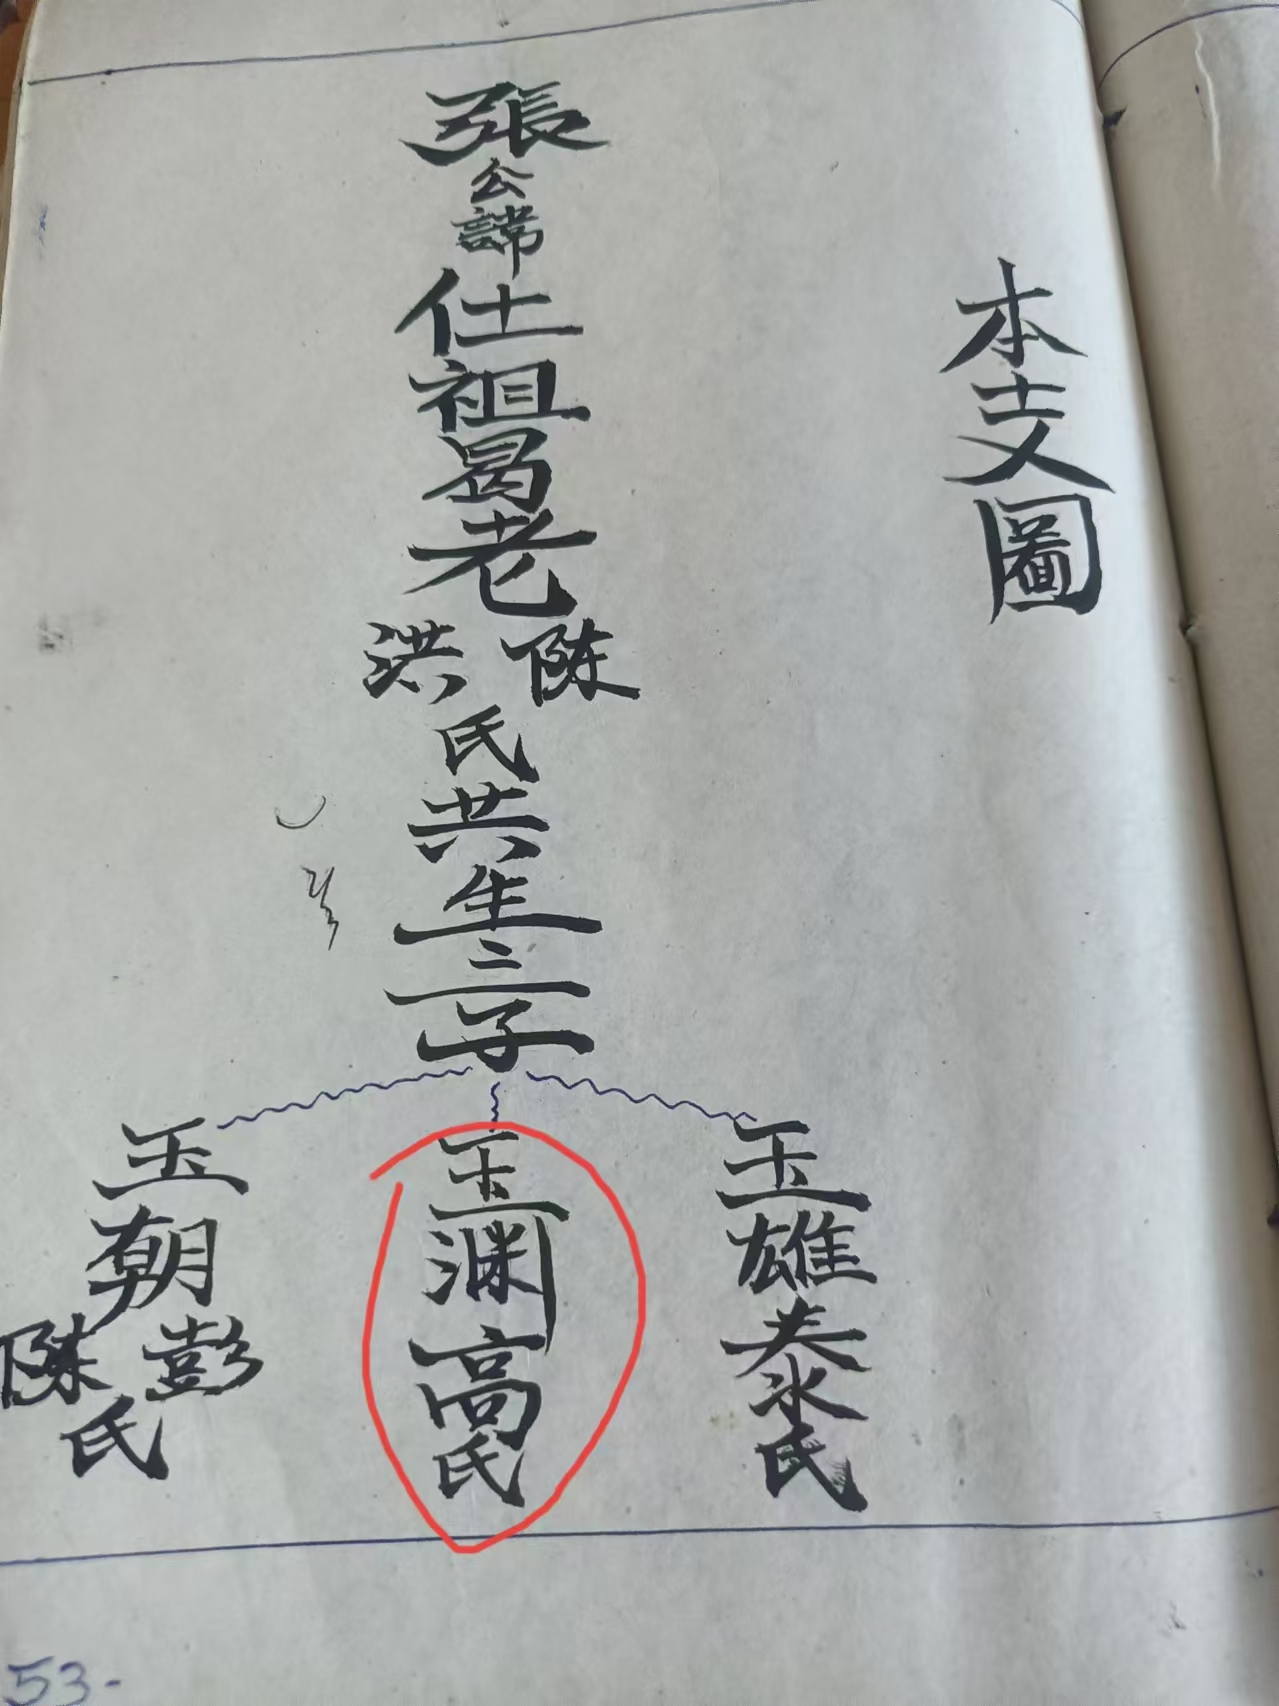 本支圖
張公諱仕祖曷老
陈洪氏共生三子
玉雄泰氏
玉渊高氏
玉朝彭陈氏
53-